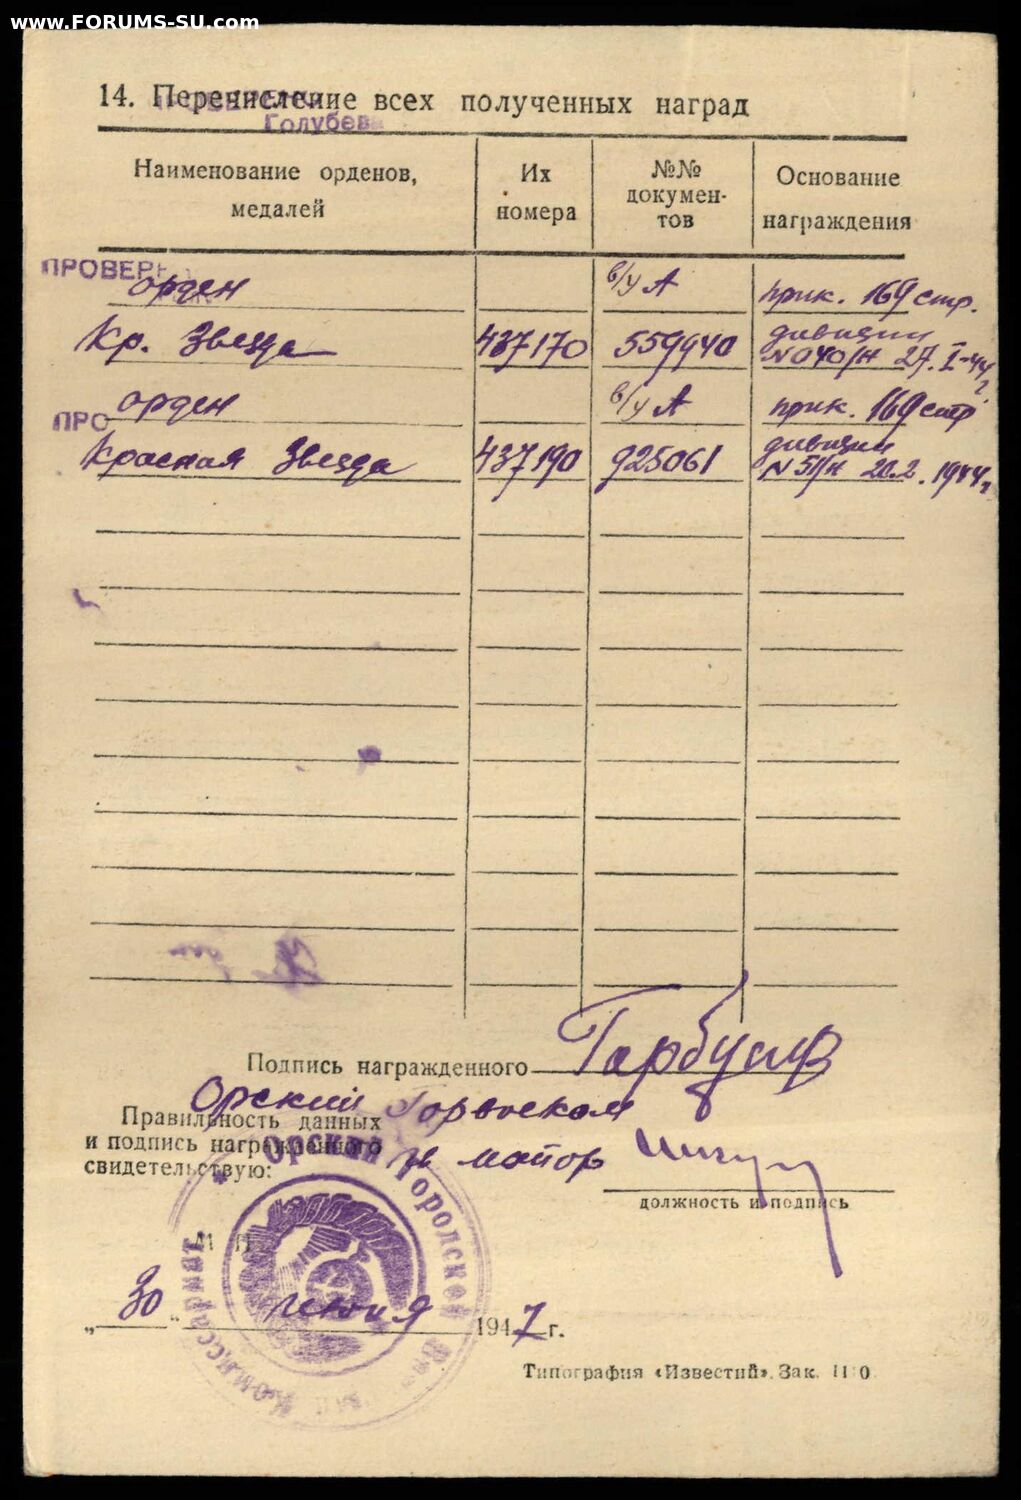 www.FORUMS-SU.com
14. Перечисление всех полученных наград
Голубев
Наименование орденов, медалей
Их номера
№№ докумен-тов
Основание награждения
ПРОВЕРЕ
орден
в/у А
прик. 169 стр.
Кр. Звезда
437170
559940
дивизии
N040/н 27.I-44
ПРО
орден
в/у А
прик. 169 стр
Красная Звезда
437190
925061
дивизии
N 5/н 20.2.1944г
Подпись награжденного
Орский Горвоенком
Правильность данных
и подпись награжденного
свидетельствую:
майор
должность и подпись
Орский Городской
Комиссариат
М П
„30" июня 1947 г.
Типография «Известий». Зак.